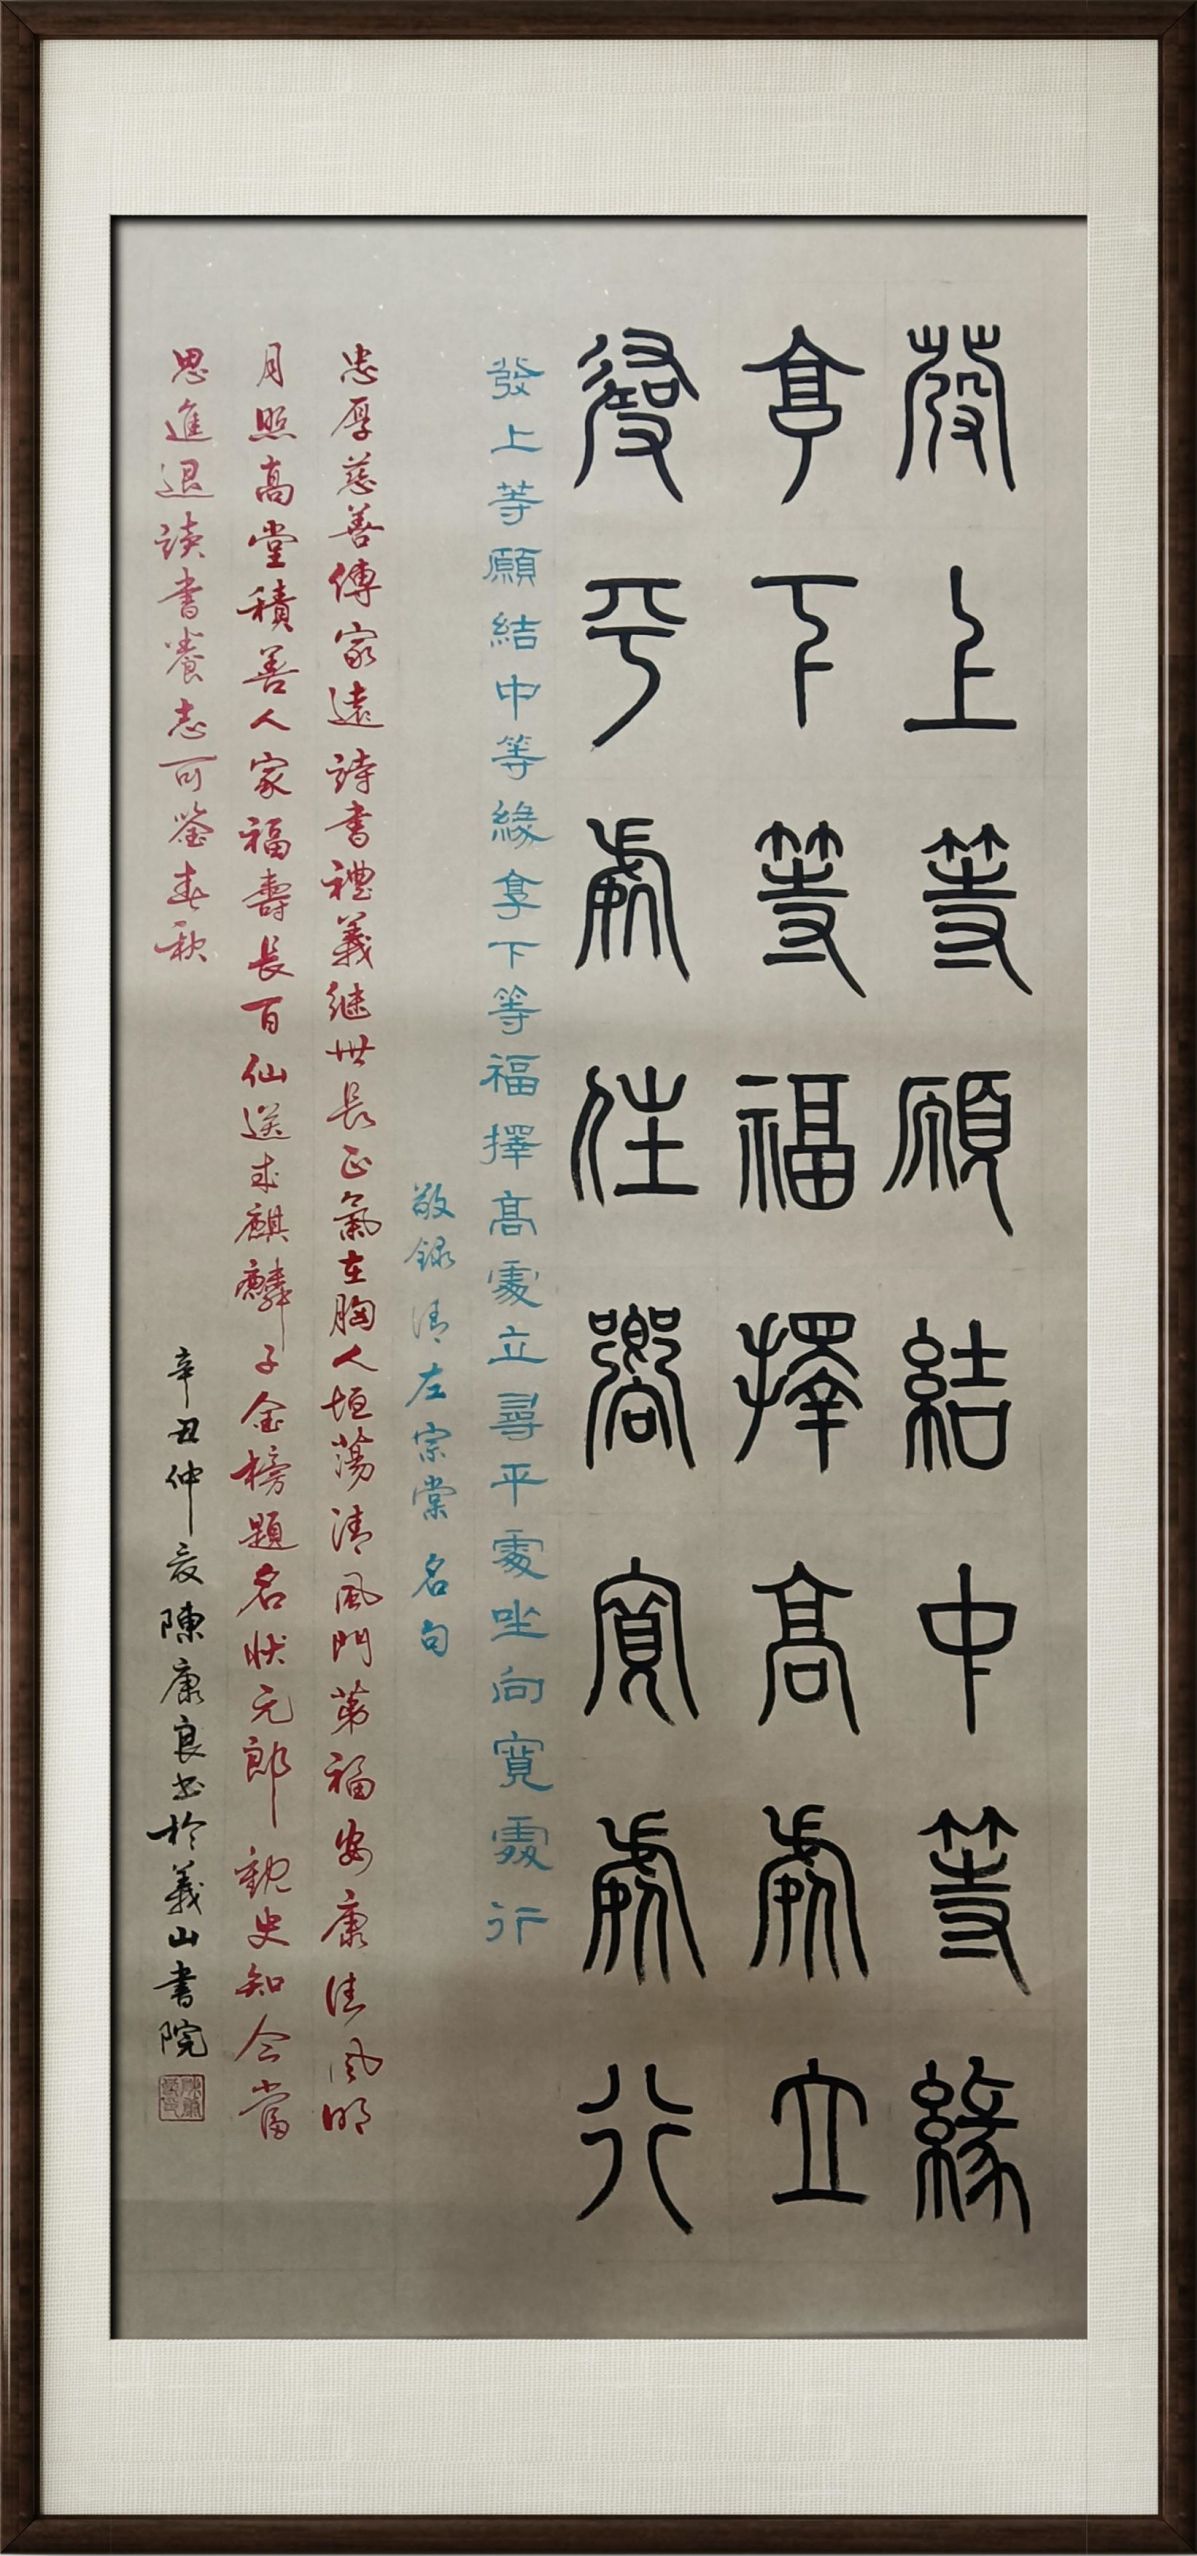 發上等願結中等緣
享下等福擇高處立
尋平處住向寬處行
發上等願結中等緣享下等福擇高處立尋平處坐向寬處行
敬錄清左宗棠名句
忠厚慈善傳家遠詩書禮義继世長正氣在胸人坦蕩清風門第福安康清風明
月照高堂積善人家福壽長百仙送來麒麟子金榜題名狀元郎觀史知今當
思進退读書養志可鑒春秋
辛丑仲夏陳康良书於義山書院